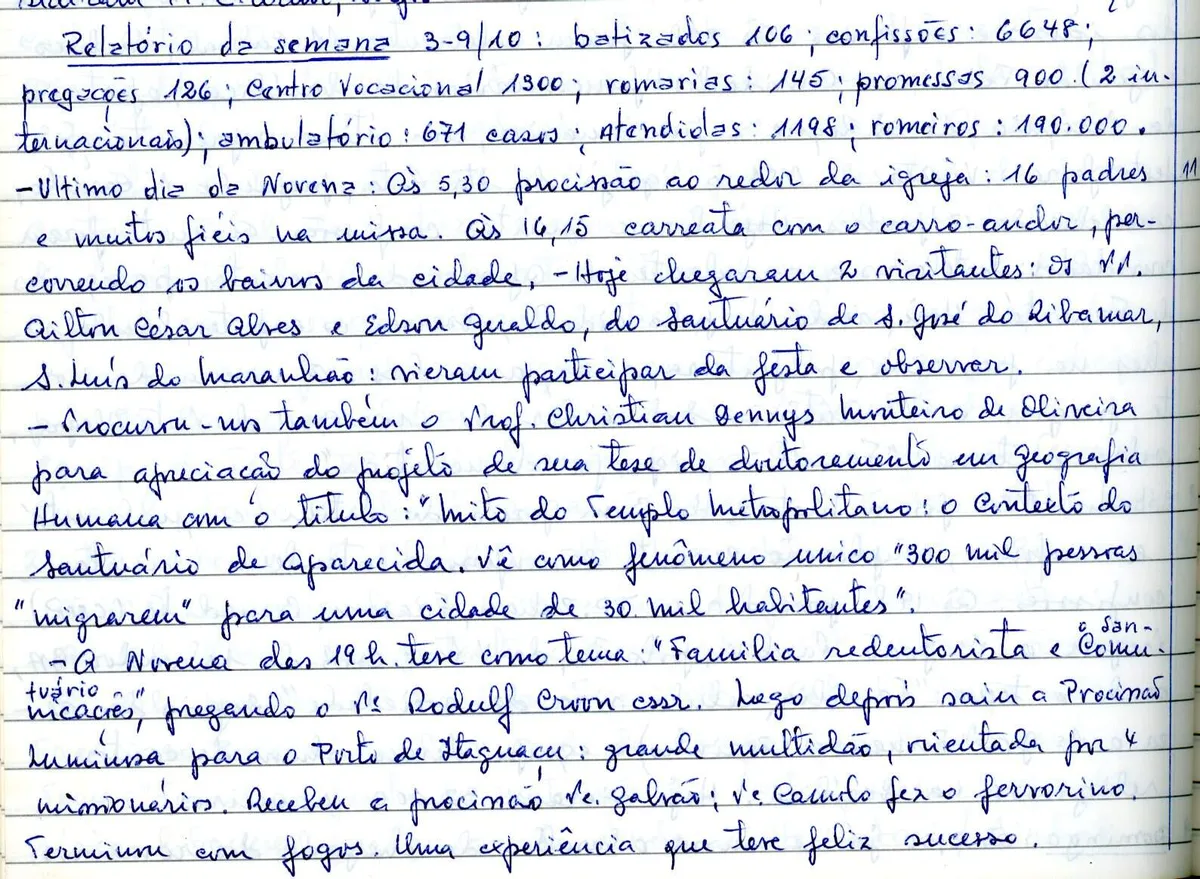 Relatório da semana 3-9/10: batizados 106; confissões: 6648;
pregações 126; Centro Vocacional 1300; romarias: 145; promessas 900. (2 in-
ternacionais); ambulatório: 671 casos; Atendidas: 1198; romeiros: 190.000.
-Ultimo dia da Novena: Às 5,30 procissão ao redor da igreja: 16 padres 11
e muitos fiéis na missa. Às 14,15 carreata com o carro-andor, per-
correndo os bairros da cidade, -Hoje chegaram 2 visitantes: os PP.
Ailton César Alves e Edson Geraldo, do Santuário de S. José do Ribamar,
S. Luís do Maranhão: vieram participar da festa e observar.
- Procurou-nos também o Prof. Christian Dennys Monteiro de Oliveira
para apreciação do projeto de sua tese de doutoramento em geografia
Humana com o título: "Mito do Templo Metropolitano: o Contexto do
Santuário de Aparecida. Vê como fenômeno unico "300 mil pessoas
"migrarem" para uma cidade de 30 mil habitantes".
- A Novena das 19 h. teve como tema: "Familia redentorista e Comu-
o San-
tuário
nicações," pregando o Pe Rodulf Croon cssr. Logo depois saiu a Procissão
Luminosa para o Porto de Itaguaçu: grande multidão, orientada por 4
missionários. Recebeu a procissão Pe. Galvão; Pe. Camilo fez o fervorino.
Terminou com fogos. Uma experiência que teve feliz sucesso.